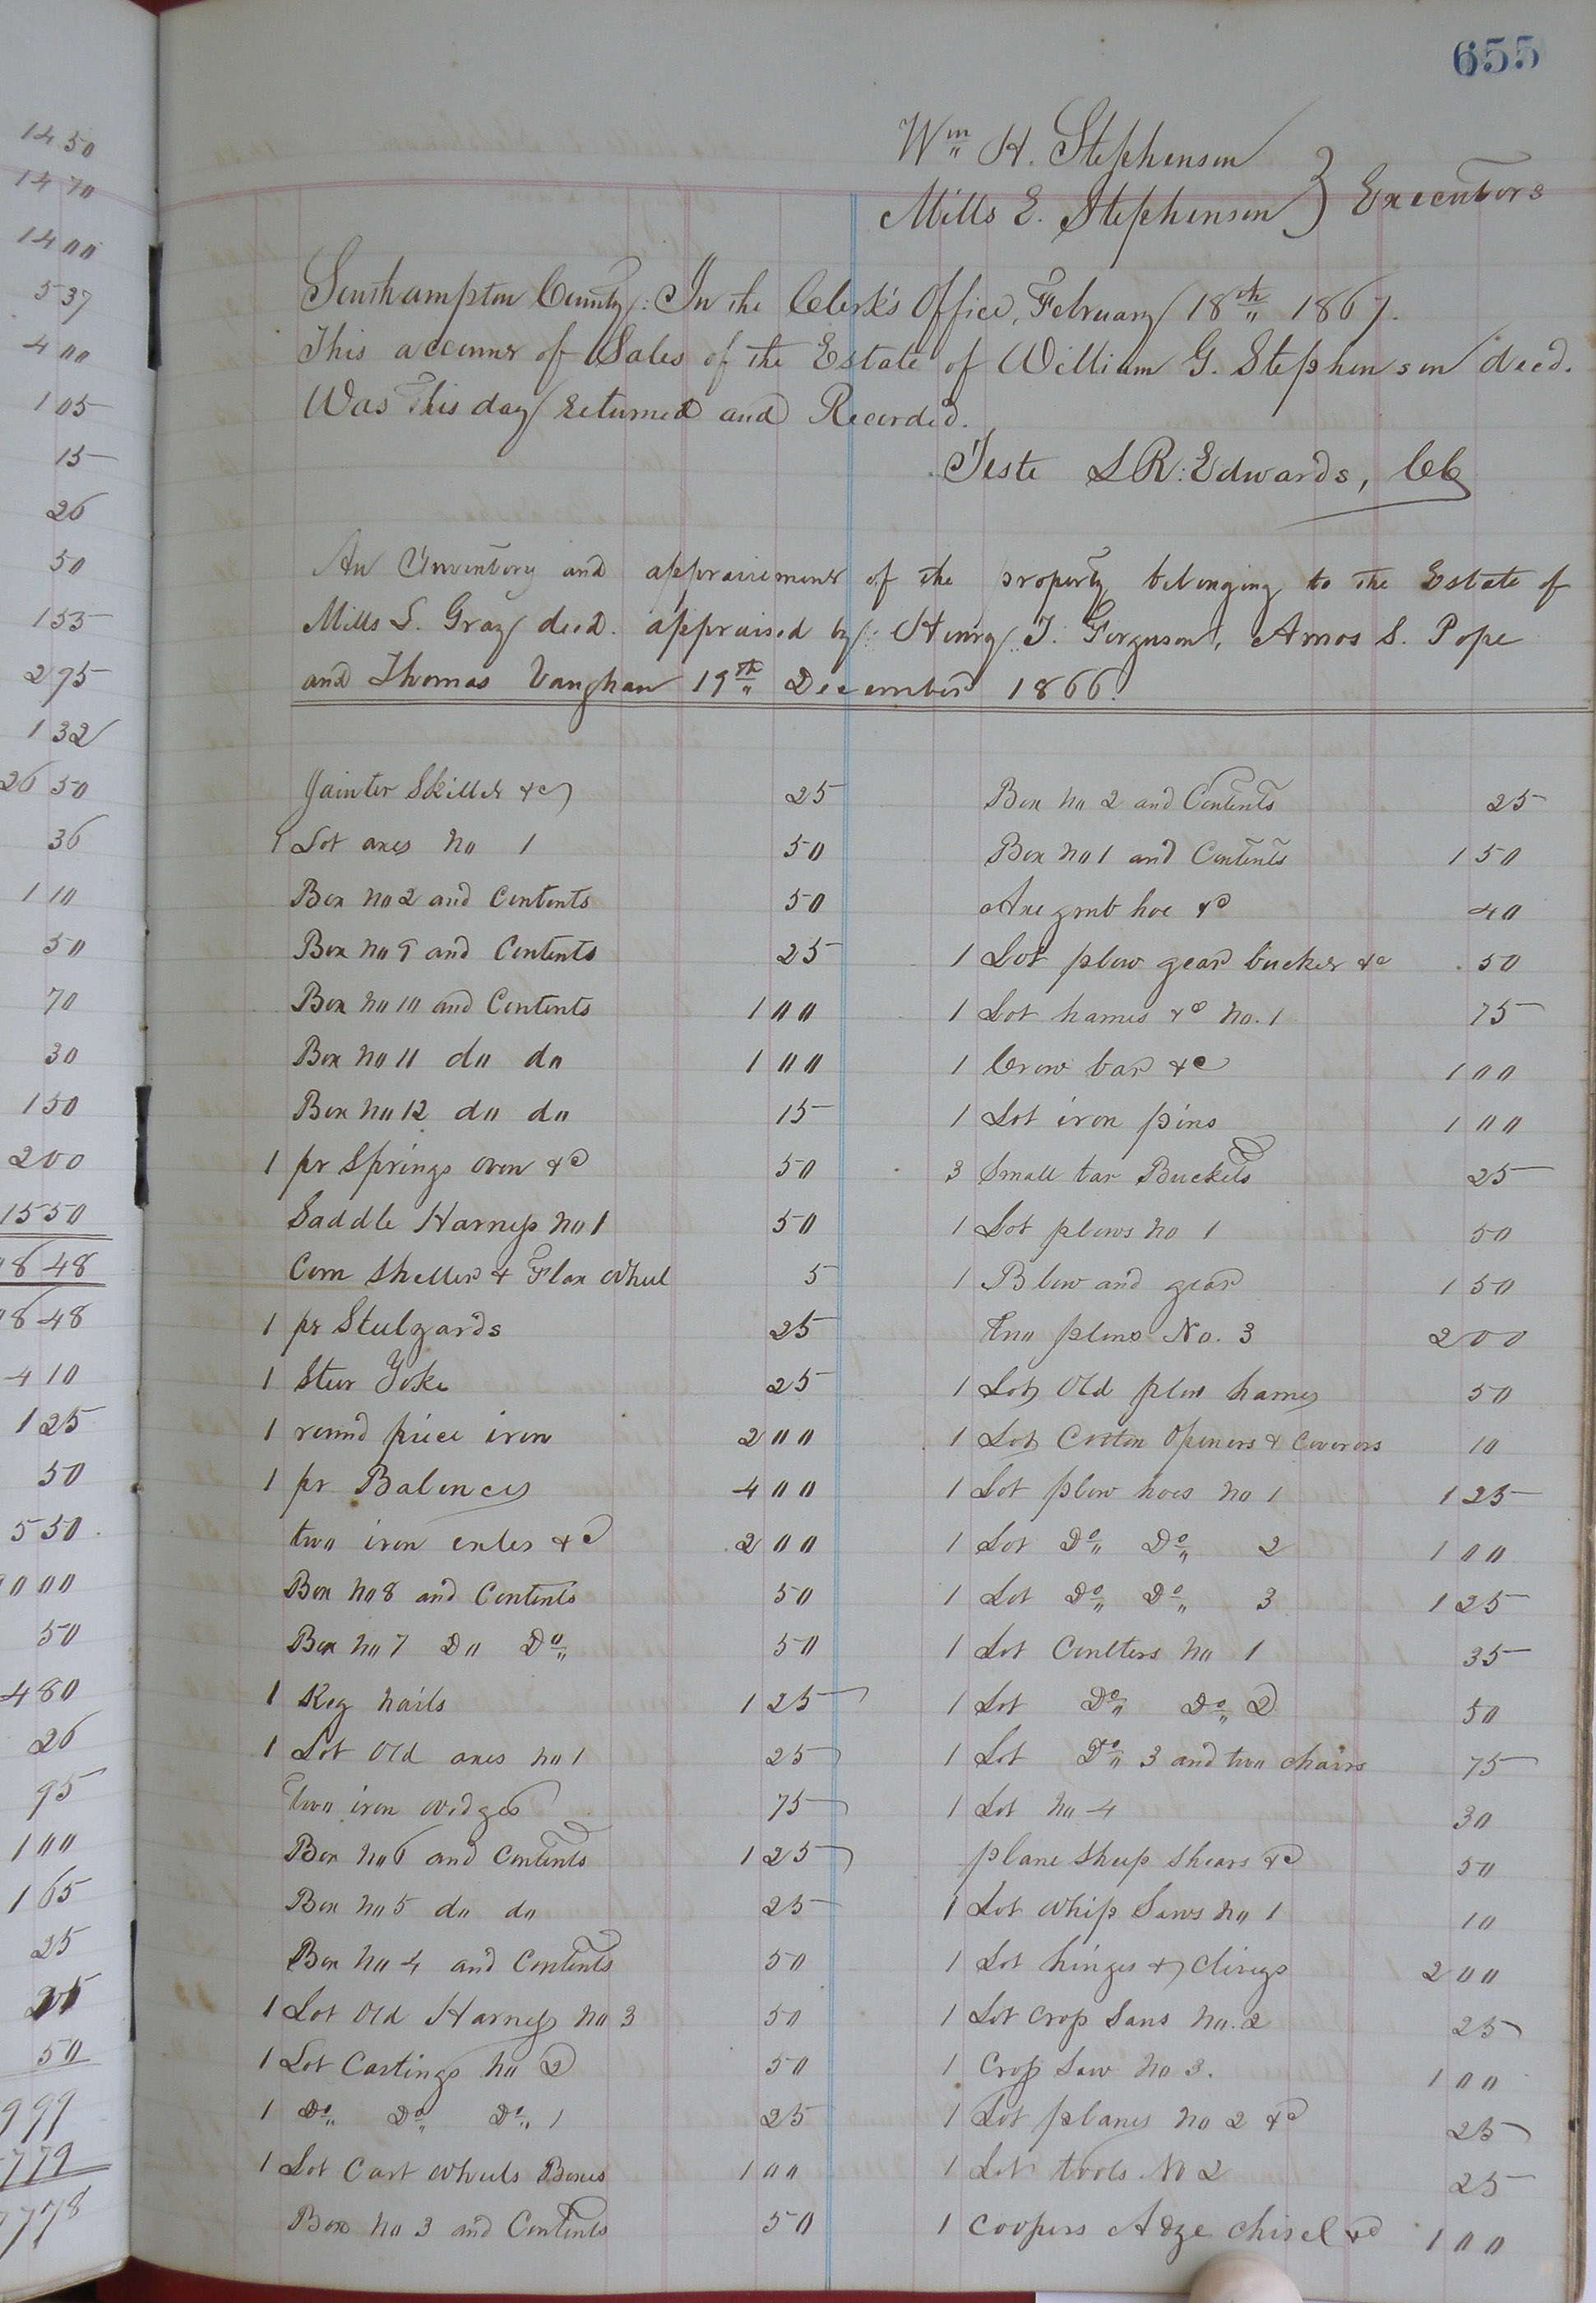 655
Wm H. Stephenson
Mills E. Stephenson } Executors
Southampton County: In the Clerk's Office, February 18th 1867.
This account of Sales of the Estate of William G. Stephenson decd.
Was this day returned and Recorded.
Teste L R: Edwards, CC
An Inventory and appraisement of the property belonging to the Estate of
Mills L. Gray decd. appraised by: Henry T. Ferguson, Amos S. Pope
and Thomas Vaughan 19th December 1866.
Jainter Skillet &c 25
1 Lot axes no 1 50
Box no 2 and Contents 50
Box no 9 and Contents 25
Box no 10 and Contents 1 00
Box no 11 do do 1 00
Box no 12 do do 15
1 pr Springs oven &c 50
Saddle Harness no 1 50
Corn Sheller & Flax Wheel 5
1 pr Steelyards 25
1 Steer Yoke 25
1 round piece iron 2 00
1 pr Balances 4 00
two iron &c 2 00
Box no 8 and Contents 50
Box no 7 Do Do 50
1 Keg nails 1 25
1 Lot Old axes no 1 25
Two iron wedges 75
Box no 6 and Contents 1 25
Box no 5 do do 25
Box no 4 and Contents 50
1 Lot Old Harness no 3 50
1 Lot Castings no 2 50
1 Do Do Do 1 25
1 Lot Cart Wheels Boxes 1 00
Box no 3 and Contents 50
Box no 2 and Contents 25
Box no 1 and Contents 1 50
Axe grub hoe &c 40
1 Lot plow gear bucket &c 50
1 Lot hames &c no. 1 75
1 Crow bar &c 1 00
1 Lot iron pins 1 00
3 Small tar Buckets 25
1 Lot plows no 1 50
1 Plow and gear 1 50
Two plows No. 3 2 00
1 Lot Old plow hames 50
1 Lot Cotton Openers & Coverers 10
1 Lot plow hoes no 1 1 25
1 Lot Do Do 2 1 00
1 Lot Do Do 3 1 25
1 Lot Coulters no 1 35
1 Lot Do Do 2 50
1 Lot Do 3 and two chairs 75
1 Lot no 4 30
plane Sheep Shears &c 50
1 Lot Whip Saws no 1 10
1 Lot hinges & 2 00
1 Lot Crop Saws no. 2 25
1 Crop Saw no 3. 1 00
1 Lot planes no 2 &c 25
1 Lot tools No 2 25
1 Coopers Adze chisel &c 1 00
14 50
14 70
14 00
5 37
4 00
1 05
15
26
50
1 53
2 95
1 32
26 50
36
1 10
50
70
30
1 50
2 00
15 50
8 48
8 48
4 10
1 25
50
5 50
0 00
50
4 80
26
95
1 00
1 65
25
50
9 99
7 79
7 78